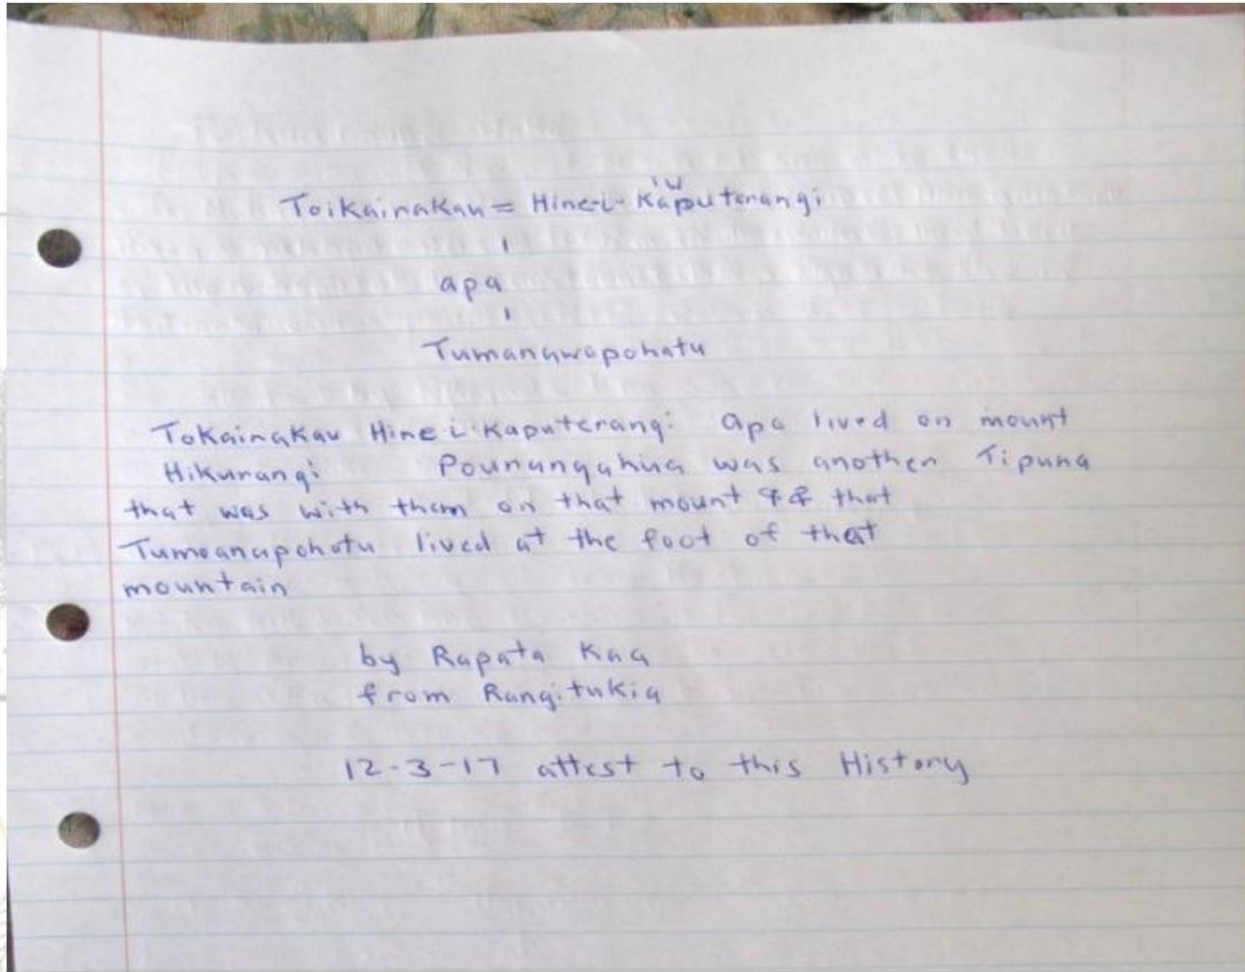 iw
Toikainakau = Hine-i-Kaputerangi
apa
Tumanawapohatu
Tokainakau Hine i Kaputerangi apa lived on mount
Hikurangi Pounangahua was another Tipuna
that was with them on that mount that
Tumoanapohatu lived at the foot of that
mountain
by Rapata Kaa
from Rangitukia
12-3-17 attest to this History